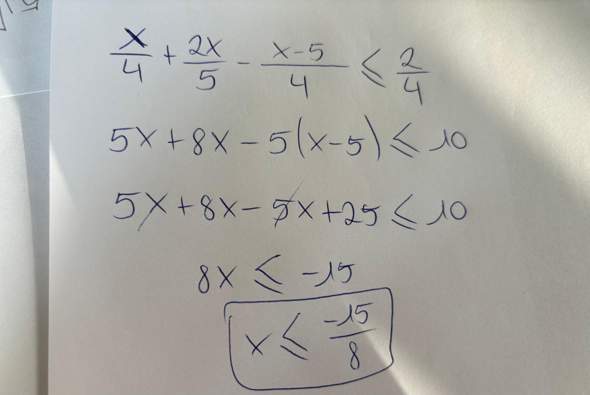 x/4 + 2x/5 - x-5/4 ≤ 2/4
5x+8x-5(x-5)≤10
5x+8x-5x+25≤10
8x ≤ -15
x ≤ -15/8